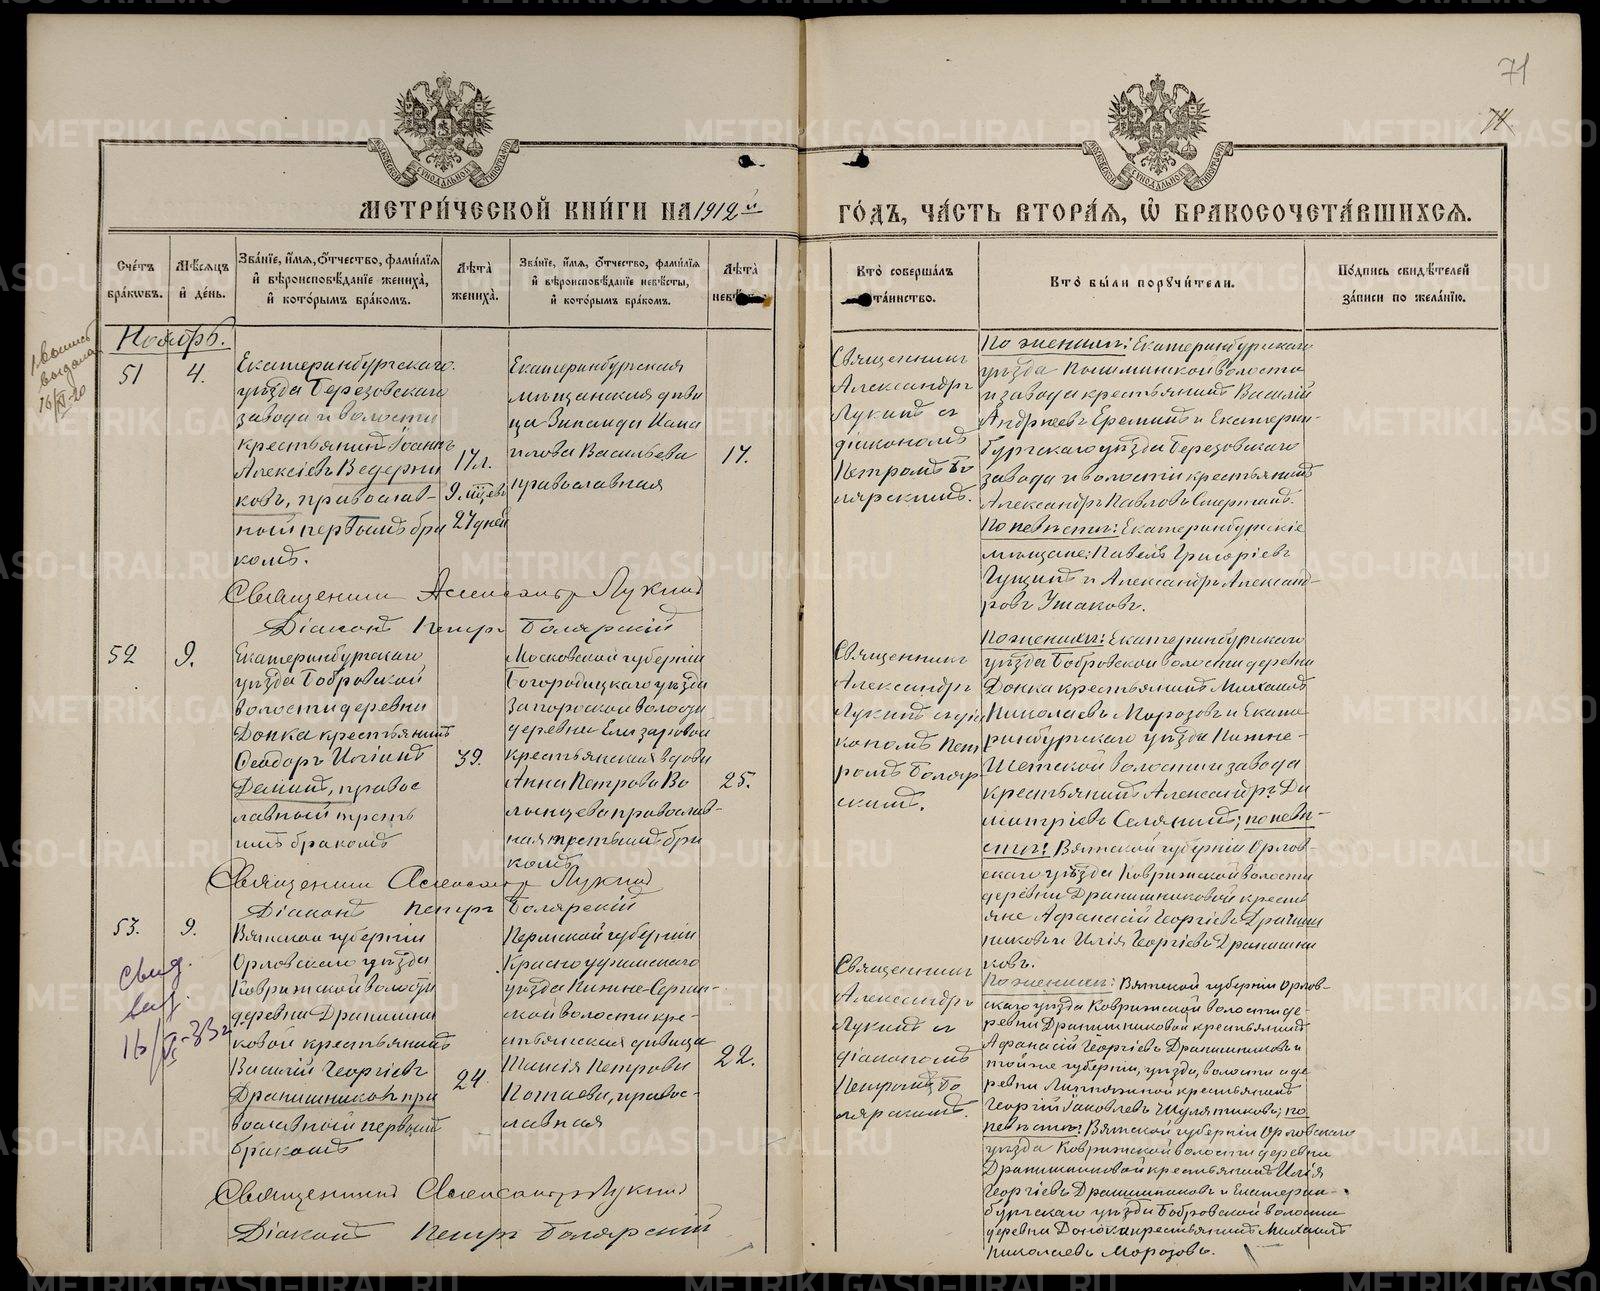 71
74
МЕТРИ́ЧЕСКОЙ КНИ́ГИ НА 1912 й
ГО́ДЪ, ЧА́СТЬ ВТОРА́Я, Ѡ҆ БРАКОСОЧЕТА́ВШИХСЯ.
Сче́тъ бра́кѡвъ.
Мѣ́сяцъ и҆ де́нь.
Зва́нїе, и҆́мя, ѻ҆́тчество, фами́лїя
и҆ вѣроисповѣ́данїе жениха̀,
и҆ кото́рымъ бра́комъ.
Лѣ́та жениха̀.
Зва́нїе, и҆́мя, ѻ҆́тчество, фами́лїя
и҆ вѣроисповѣ́данїе невѣ́сты,
и҆ кото́рымъ бра́комъ.
Лѣ́та
Кто̀ соверша́лъ
та́инство.
Кто̀ бы́ли порꙋчи́тели.
По́дпись свидѣ́телей
за́писи по жела́нїю.
Ноябрь.
51
4.
Екатеринбургскаго
уѣзда Березовскаго
завода и волости
крестьянинъ Іоаннъ
Алексіевъ Ведерни
ковъ, православ-
ный первымъ бра
комъ.
17 л.
9 мѣцевъ
27 дней
Екатеринбургская
мѣщанская дѣви
ца Зинаида Измаи
лова Васильева
православная
17.
Священникъ
Александръ
Лукинъ съ
діакономъ
Петромъ Бо
лярскимъ.
По женихѣ: Екатеринбургскаго
уѣзда Пышминской волости
и завода крестьянинъ Василій
Андреевъ Ереминъ и Екатерин-
бургскаго уѣзда Березовскаго
завода и волости крестьянинъ
Александръ Павловъ
По невѣстѣ: Екатеринбургскіе
мѣщане: Павелъ Григоріевъ
Гущинъ и Александръ Александ-
ровъ Ушаковъ.
Священникъ Александръ Лукинъ
Діаконъ Петръ Болярскій
52
9.
Екатеринбургскаго
уѣзда Бобровской
волости деревни
Донка крестьянинъ
Ѳеодоръ
Деминъ, право
славный треть
имъ бракомъ
39.
Московской губерніи
Богородицкаго уѣзда
Запорской волости
деревни Елизаровой
крестьянская вдова
Анна Петрова Во
лынцева православ-
ная третьимъ бра
комъ
25.
Священникъ
Александръ
Лукинъ съ діа
кономъ Пет
ромъ Боляр
скимъ.
По женихѣ: Екатеринбургскаго
уѣзда Бобровской волости деревни
Донка крестьянинъ Михаилъ
Николаевъ Морозовъ и Екате
ринбургскаго уѣзда Нижне-
Исетской волости и завода
крестьянинъ Александръ Ди
митріевъ Селянинъ; по невѣ-
стѣ: Вятской губерніи Орлов-
скаго уѣзда Коврижской волости
деревни Дранишниковой кресть
яне Аѳанасій Георгіевъ Дранишн
никовъ и Илія Георгіевъ Дранишни
ковъ.
Священникъ Александръ Лукинъ
Діаконъ Петръ Болярскій
53.
9.
Вятской губерніи
Орловскаго уѣзда
Коврижской волости
деревни Дранишни
ковой крестьянинъ
Василій Георгіевъ
Дранишниковъ пра
вославный первымъ
бракомъ
24
Пермской губерніи
Красноуфимскаго
уѣзда Нижне-Сергин-
ской волости кре-
стьянская дѣвица
Таисія Петрова
Потаева, правос-
лавная
22.
Священникъ
Александръ
Лукинъ съ
діакономъ
Петромъ Бо
лярскимъ.
По женихѣ: Вятской губерніи Орлов-
скаго уѣзда Коврижской волости де-
ревни Дранишниковой крестьянинъ
Аѳанасій Георгіевъ Дранишниковъ и
той же губерніи, уѣзда, волости и де-
ревни крестьянинъ
Георгій Яковлевъ Шулятиковъ; по
невѣстѣ: Вятской губерніи Орловскаго
уѣзда Коврижской волости деревни
Дранишниковой крестьянинъ Илія
Георгіевъ Дранишниковъ и Екатерин-
бургскаго уѣзда Бобровской волости
деревни Донка крестьянинъ Михаилъ
Николаевъ Морозовъ.
Священникъ Александръ Лукинъ
Діаконъ Петръ Болярскій
METRIKI.GASO-URAL.RU